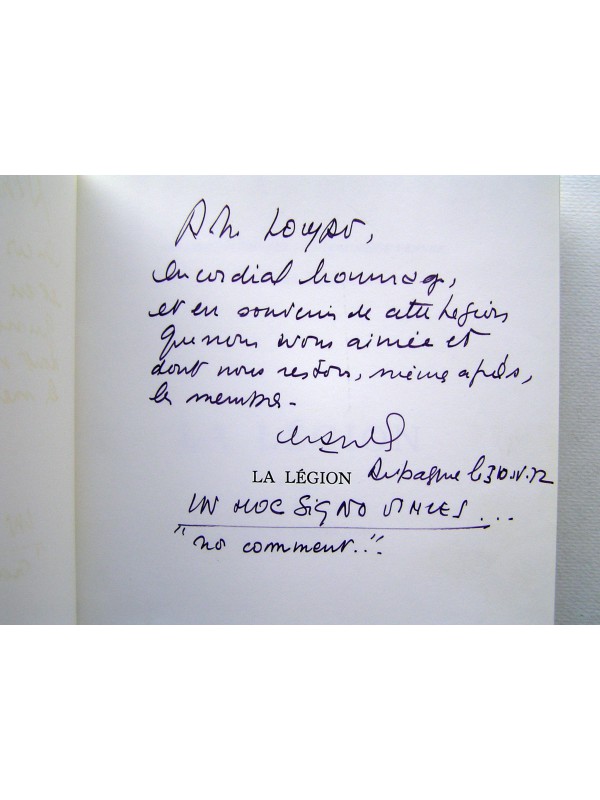 A M. LOUPAD,
en cordial hommage,
et en souvenir de cette Legion
que nous avons aimée et
dont nous restons, même après,
les membres.
LA LÉGION Aubagne le 30.IV.72
IN HOC SIGNO VINCES...
"no comment.."